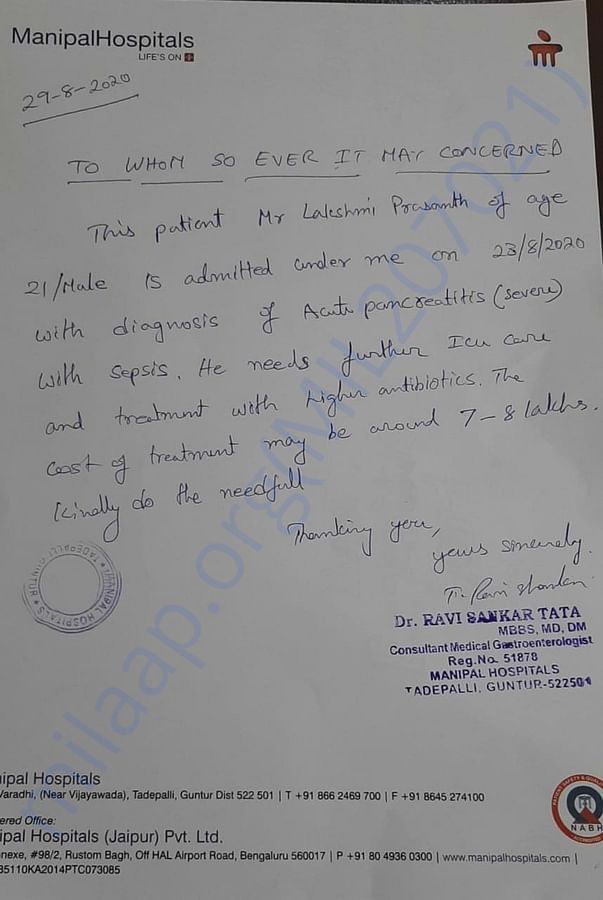 ManipalHospitals
LIFE'S ON
29-8-2020
TO WHOM SO EVER IT MAY CONCERNED
This patient Mr Lakshmi Prasanth of age
21/Male is admitted under me on 23/8/2020
with diagnosis of Acute pancreatitis (severe)
with sepsis. He needs further Icu care
and treatment with higher antibiotics. The
cost of treatment may be around 7-8 lakhs.
Kindly do the needfull
Thanking you,
yours sincerely.
T. Ravi Shankar
MANIPAL HOSPITALS ★ TADEPALLI GUNTUR ★
Dr. RAVI SANKAR TATA
MBBS, MD, DM
Consultant Medical Gastroenterologist
Reg.No. 51878
MANIPAL HOSPITALS
TADEPALLI, GUNTUR-522501
milaap.org(MIL207021)
ipal Hospitals
Varadhi, (Near Vijayawada), Tadepalli, Guntur Dist 522 501 | T +91 866 2469 700 | F +91 8645 274100
ered Office:
ipal Hospitals (Jaipur) Pvt. Ltd.
nexe, #98/2, Rustom Bagh, Off HAL Airport Road, Bengaluru 560017 | P +91 80 4936 0300 | www.manipalhospitals.com |
85110KA2014PTC073085
NABH